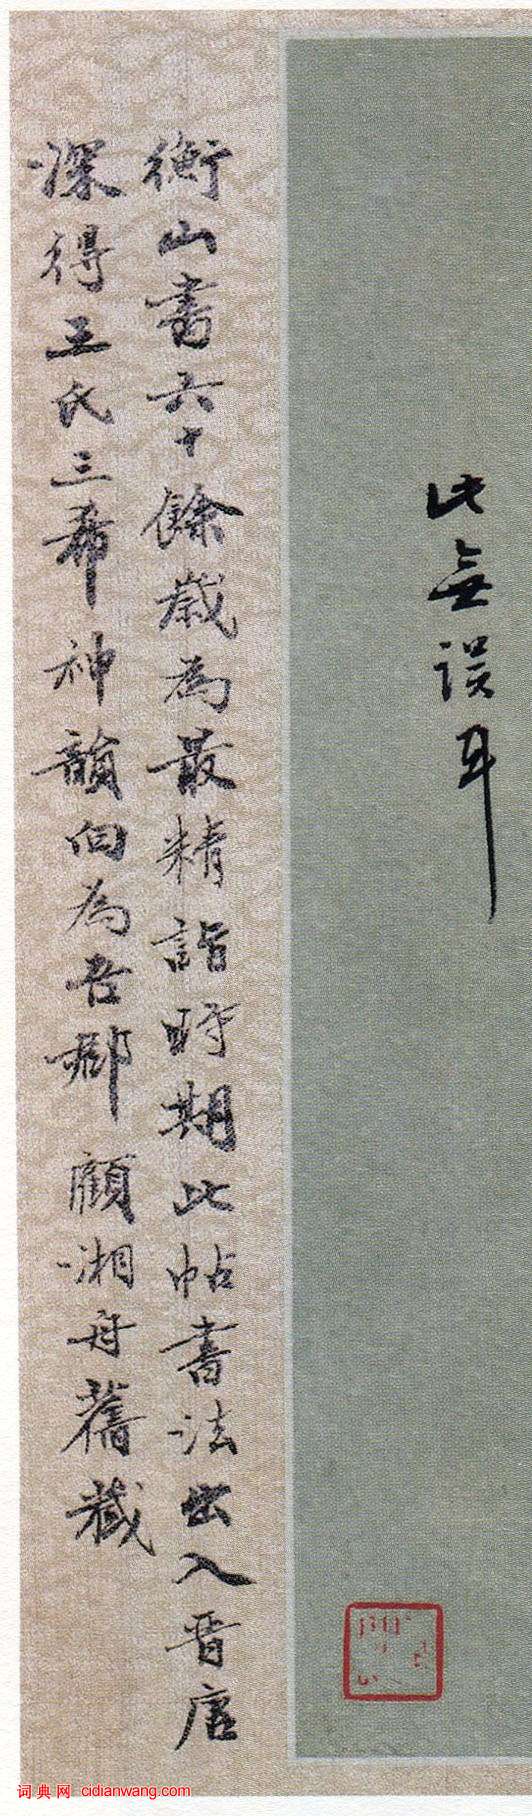 此無誤耳
衡山書六十餘歲為最精詣時期此帖書法出入晋唐
深得王氏三希神韻向為吾鄉顧湘舟舊藏
词典网 cidianwang.com